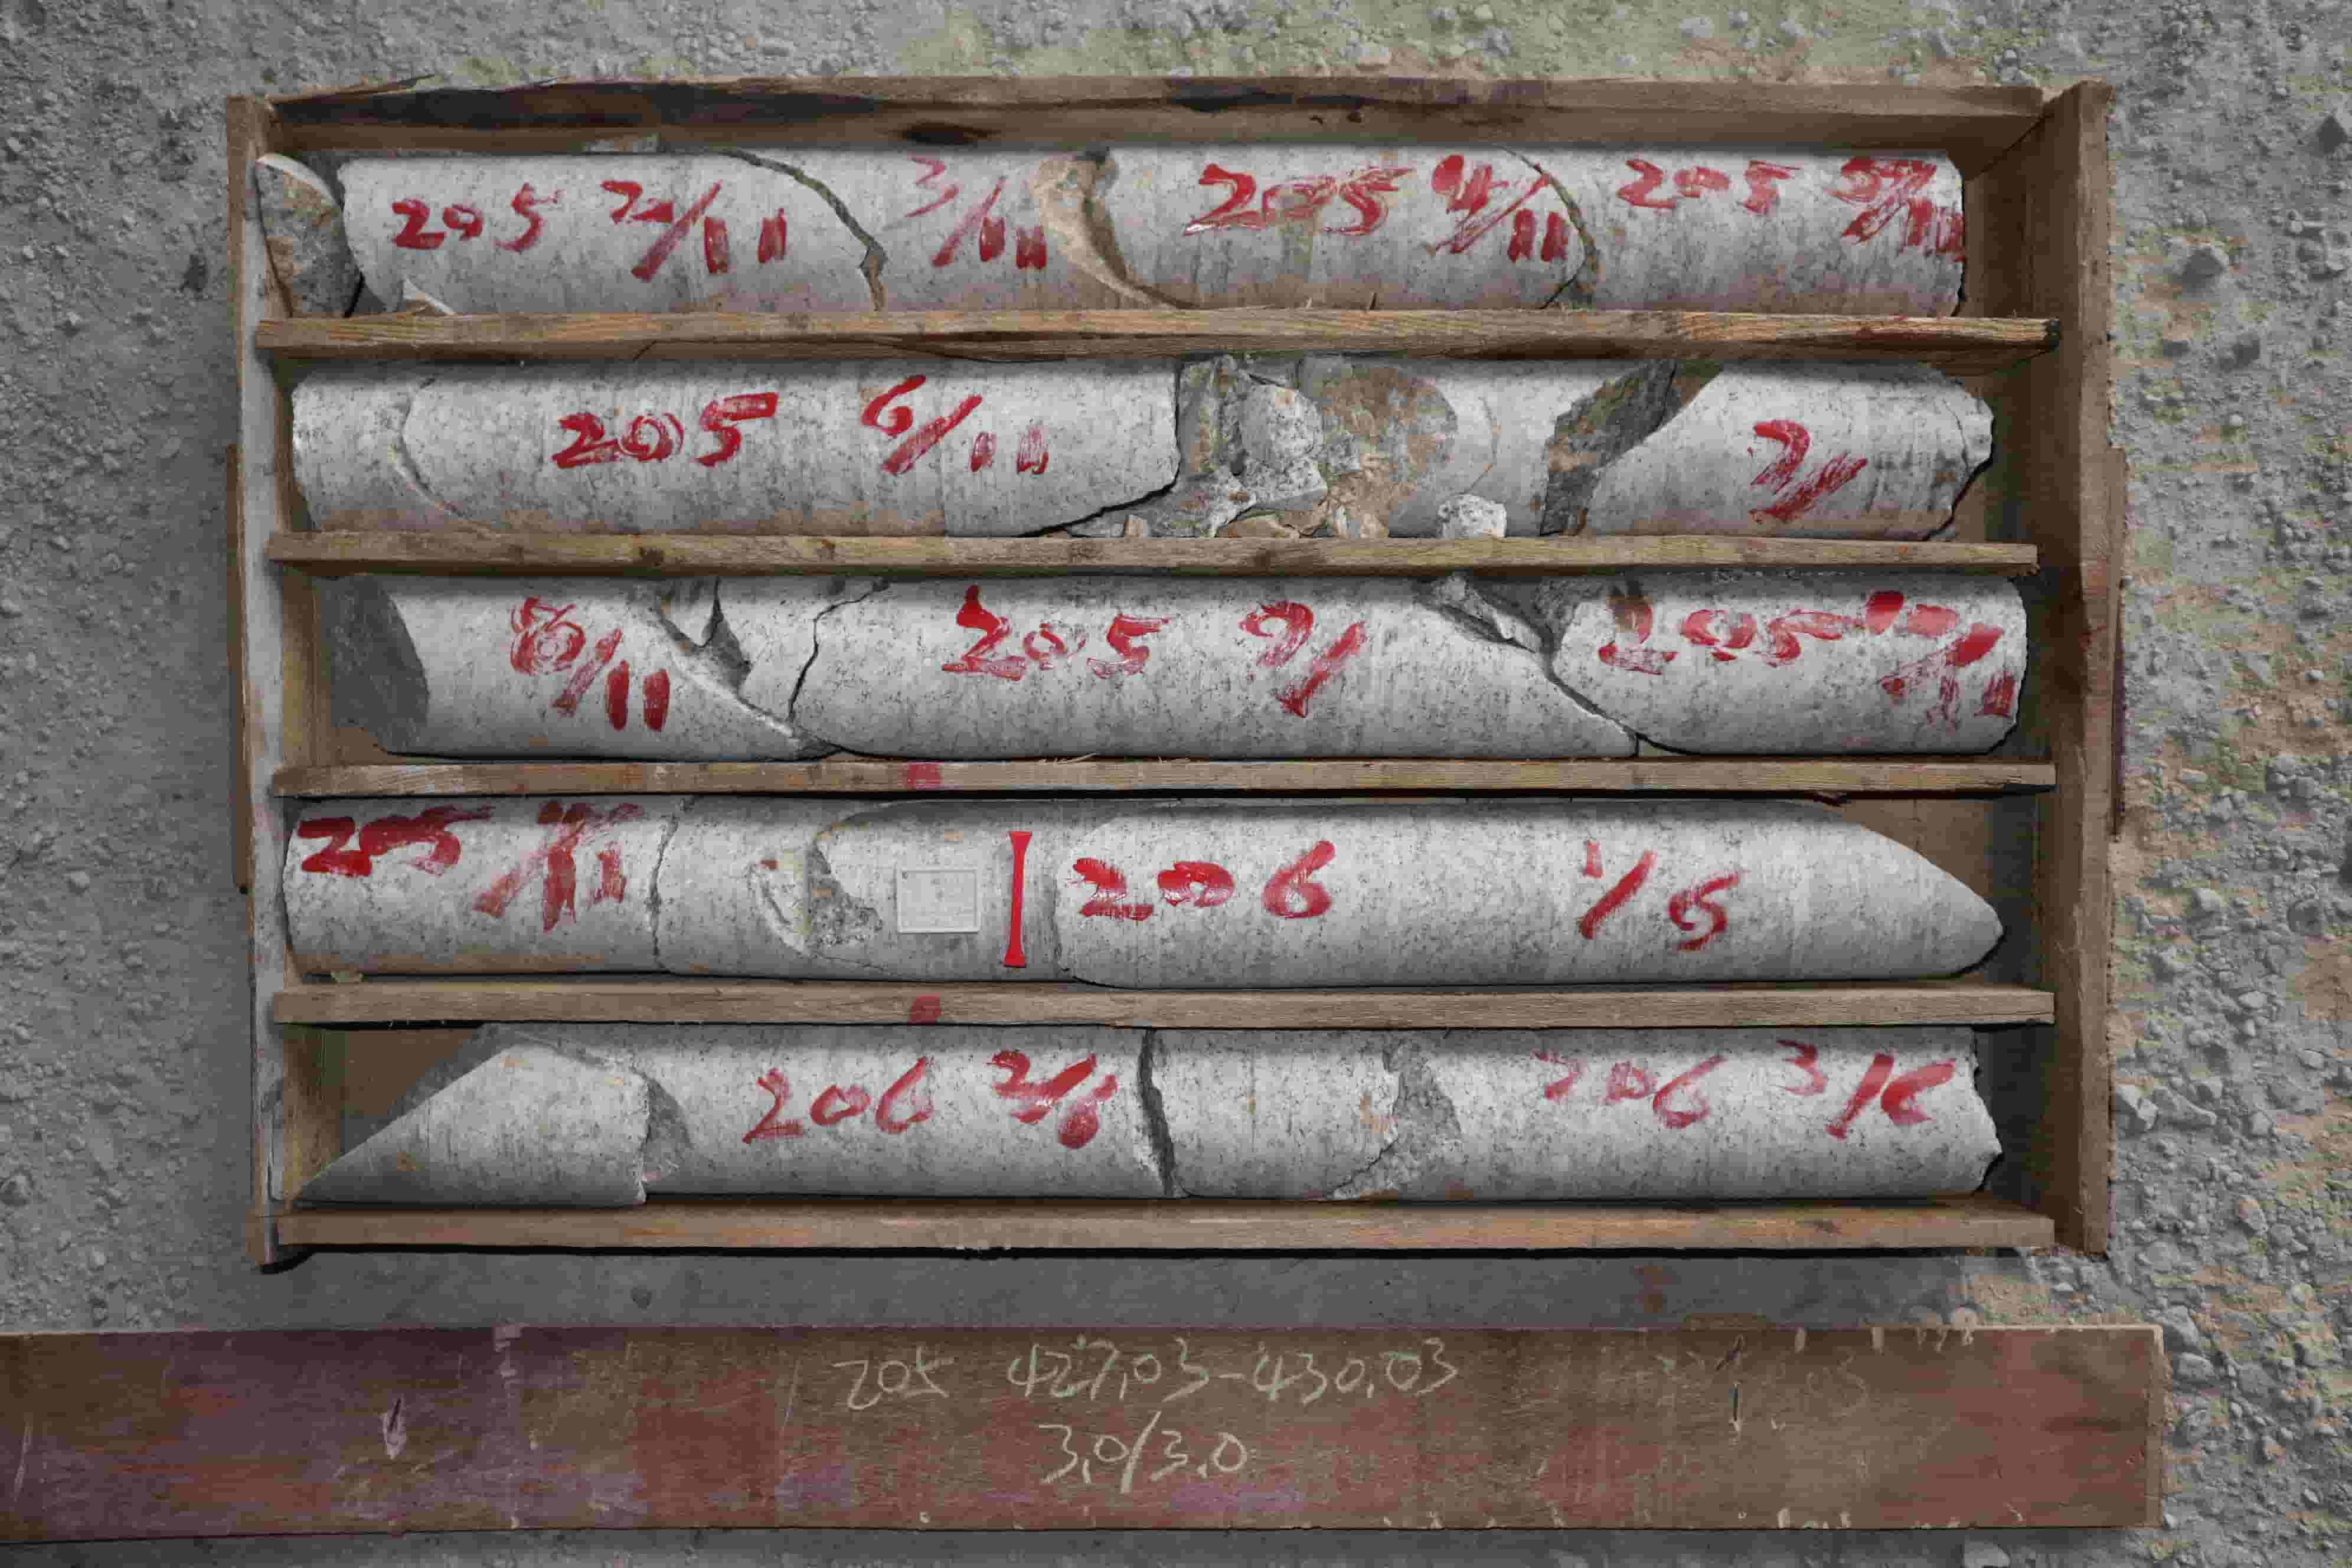 205 2/11 3/11 205 4/11 205 5/11
205 6/11 7/
8/11 205 9/ 205 10/11
205 11/11 206 1/6
206 2/6 206 3/6
205 427.03-430.03
3.0/3.0